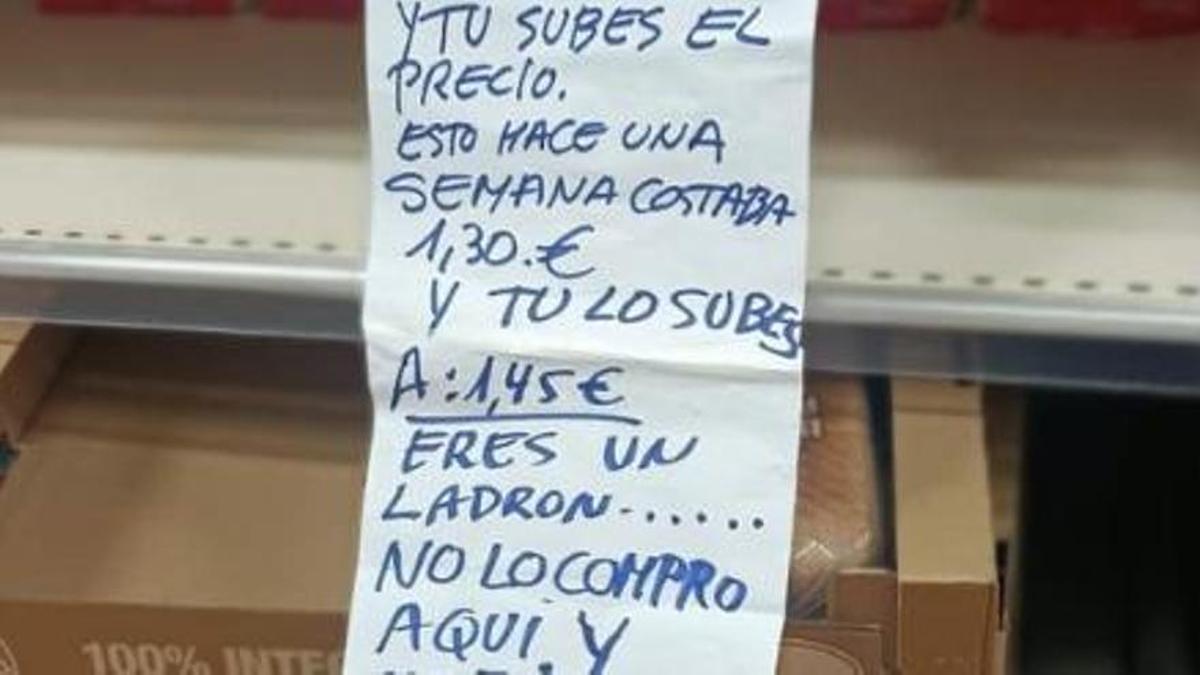 Y TU SUBES EL
PRECIO.
ESTO HACE UNA
SEMANA COSTABA
1,30.€
Y TU LO SUBES
A:1,45€
ERES UN
LADRON-.....
NO LO COMPRO
AQUI. Y
100% INTEG